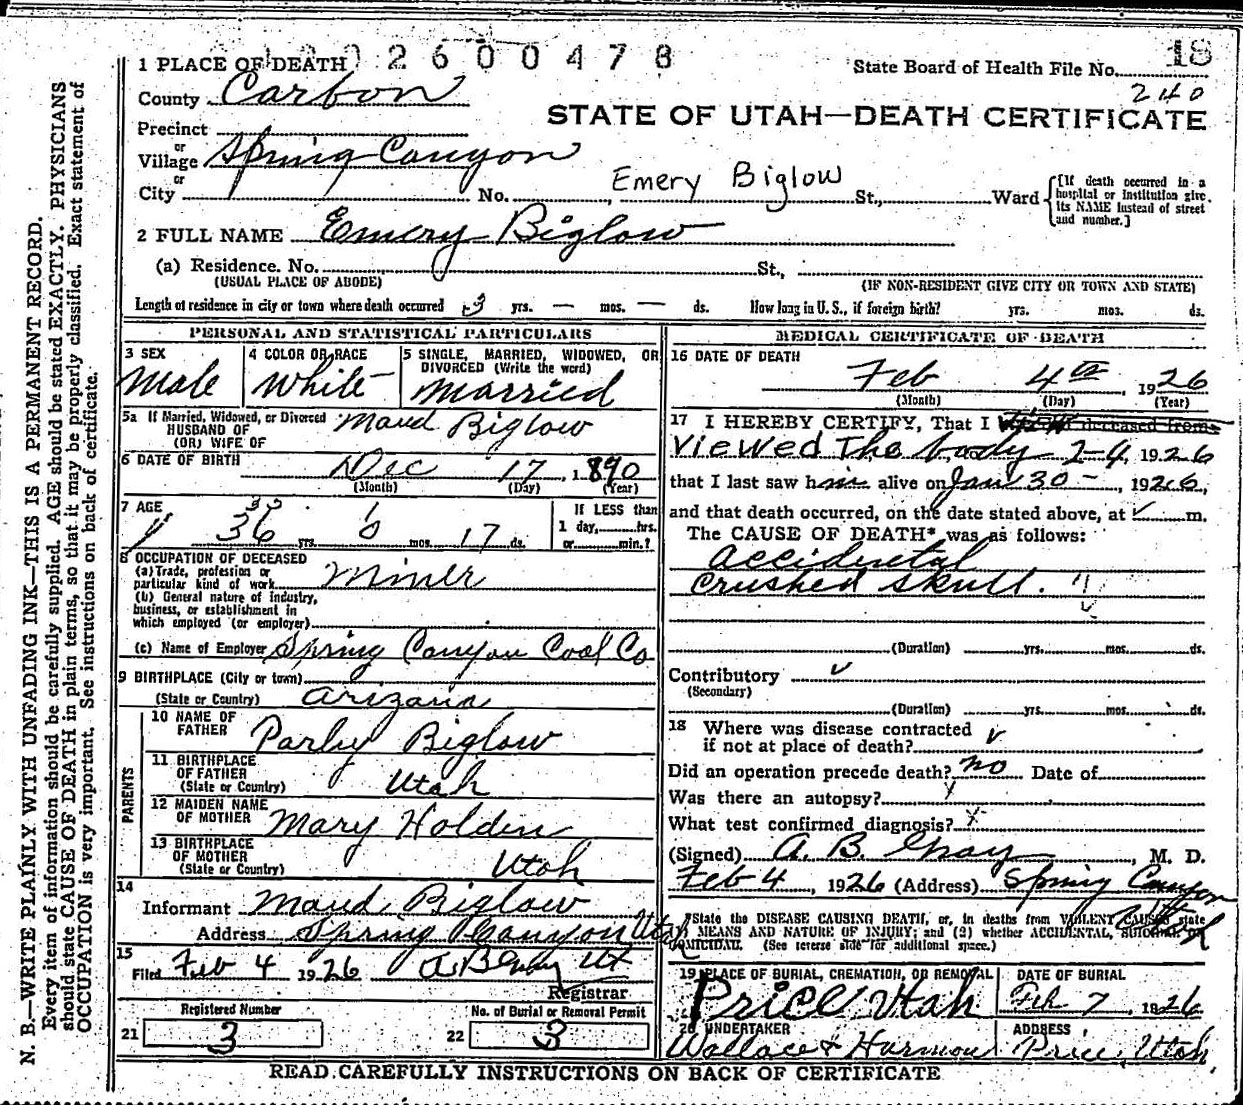 2600478
18
1 PLACE OF DEATH
State Board of Health File No.
240
County Carbon
STATE OF UTAH—DEATH CERTIFICATE
Precinct
or
Village Spring Canyon
or
City No. , Emery Biglow St., Ward
[If death occurred in a hospital or institution give its NAME instead of street and number.]
2 FULL NAME Emery Biglow
(a) Residence. No. St.,
(USUAL PLACE OF ABODE) (IF NON-RESIDENT GIVE CITY OR TOWN AND STATE)
Length of residence in city or town where death occurred 3 yrs. — mos. — ds. How long in U.S., if foreign birth? yrs. mos. ds.
PERSONAL AND STATISTICAL PARTICULARS
3 SEX
Male
4 COLOR OR RACE
White
5 SINGLE, MARRIED, WIDOWED, OR DIVORCED (Write the word)
Married
5a If Married, Widowed, or Divorced
HUSBAND OF
(OR) WIFE OF
Maud Biglow
6 DATE OF BIRTH
Dec 17, 1890
(Month) (Day) (Year)
7 AGE
36 yrs. mos. 17 ds.
If LESS than
1 day, hrs.
or min.?
8 OCCUPATION OF DECEASED
(a) Trade, profession or
particular kind of work Miner
(b) General nature of Industry,
business, or establishment in
which employed (or employer)
(c) Name of Employer Spring Canyon Coal Co
9 BIRTHPLACE (City or town)
(State or Country) Arizona
PARENTS
10 NAME OF
FATHER
Parly Biglow
11 BIRTHPLACE
OF FATHER
(State or Country) Utah
12 MAIDEN NAME
OF MOTHER
Mary Holden
13 BIRTHPLACE
OF MOTHER
(State or Country) Utah
14
Informant Maud Biglow
Address Spring Canyon Utah
15
Filed Feb 4 1926 A B Gray
Registrar
Registered Number
21 3
No. of Burial or Removal Permit
22 3
MEDICAL CERTIFICATE OF DEATH
16 DATE OF DEATH
Feb 4th 1926
(Month) (Day) (Year)
17 I HEREBY CERTIFY, That I deceased from
Viewed The body 2-4, 1926
that I last saw him alive on Jan 30 -, 1926,
and that death occurred, on the date stated above, at m.
The CAUSE OF DEATH* was as follows:
Accidental
Crushed Skull.
(Duration) yrs. mos. ds.
Contributory
(Secondary)
(Duration) yrs. mos. ds.
18 Where was disease contracted
if not at place of death?
Did an operation precede death? no Date of
Was there an autopsy?
What test confirmed diagnosis?
(Signed) A. B. Gray, M. D.
Feb 4, 1926 (Address) Spring Canyon
Utah
*State the DISEASE CAUSING DEATH, or, in deaths from VIOLENT CAUSES state
MEANS AND NATURE OF INJURY; and (2) whether ACCIDENTAL, SUICIDAL or
HOMICIDAL. (See reverse side for additional space.)
19 PLACE OF BURIAL, CREMATION, OR REMOVAL
Price Utah
DATE OF BURIAL
Feb 7, 1926
20 UNDERTAKER
Wallace & Harmon
ADDRESS
Price, Utah
READ CAREFULLY INSTRUCTIONS ON BACK OF CERTIFICATE
N. B.—WRITE PLAINLY WITH UNFADING INK—THIS IS A PERMANENT RECORD.
Every item of information should be carefully supplied. AGE should be stated EXACTLY. PHYSICIANS
should state CAUSE OF DEATH in plain terms, so that it may be properly classified. Exact statement of
OCCUPATION is very important. See instructions on back of certificate.